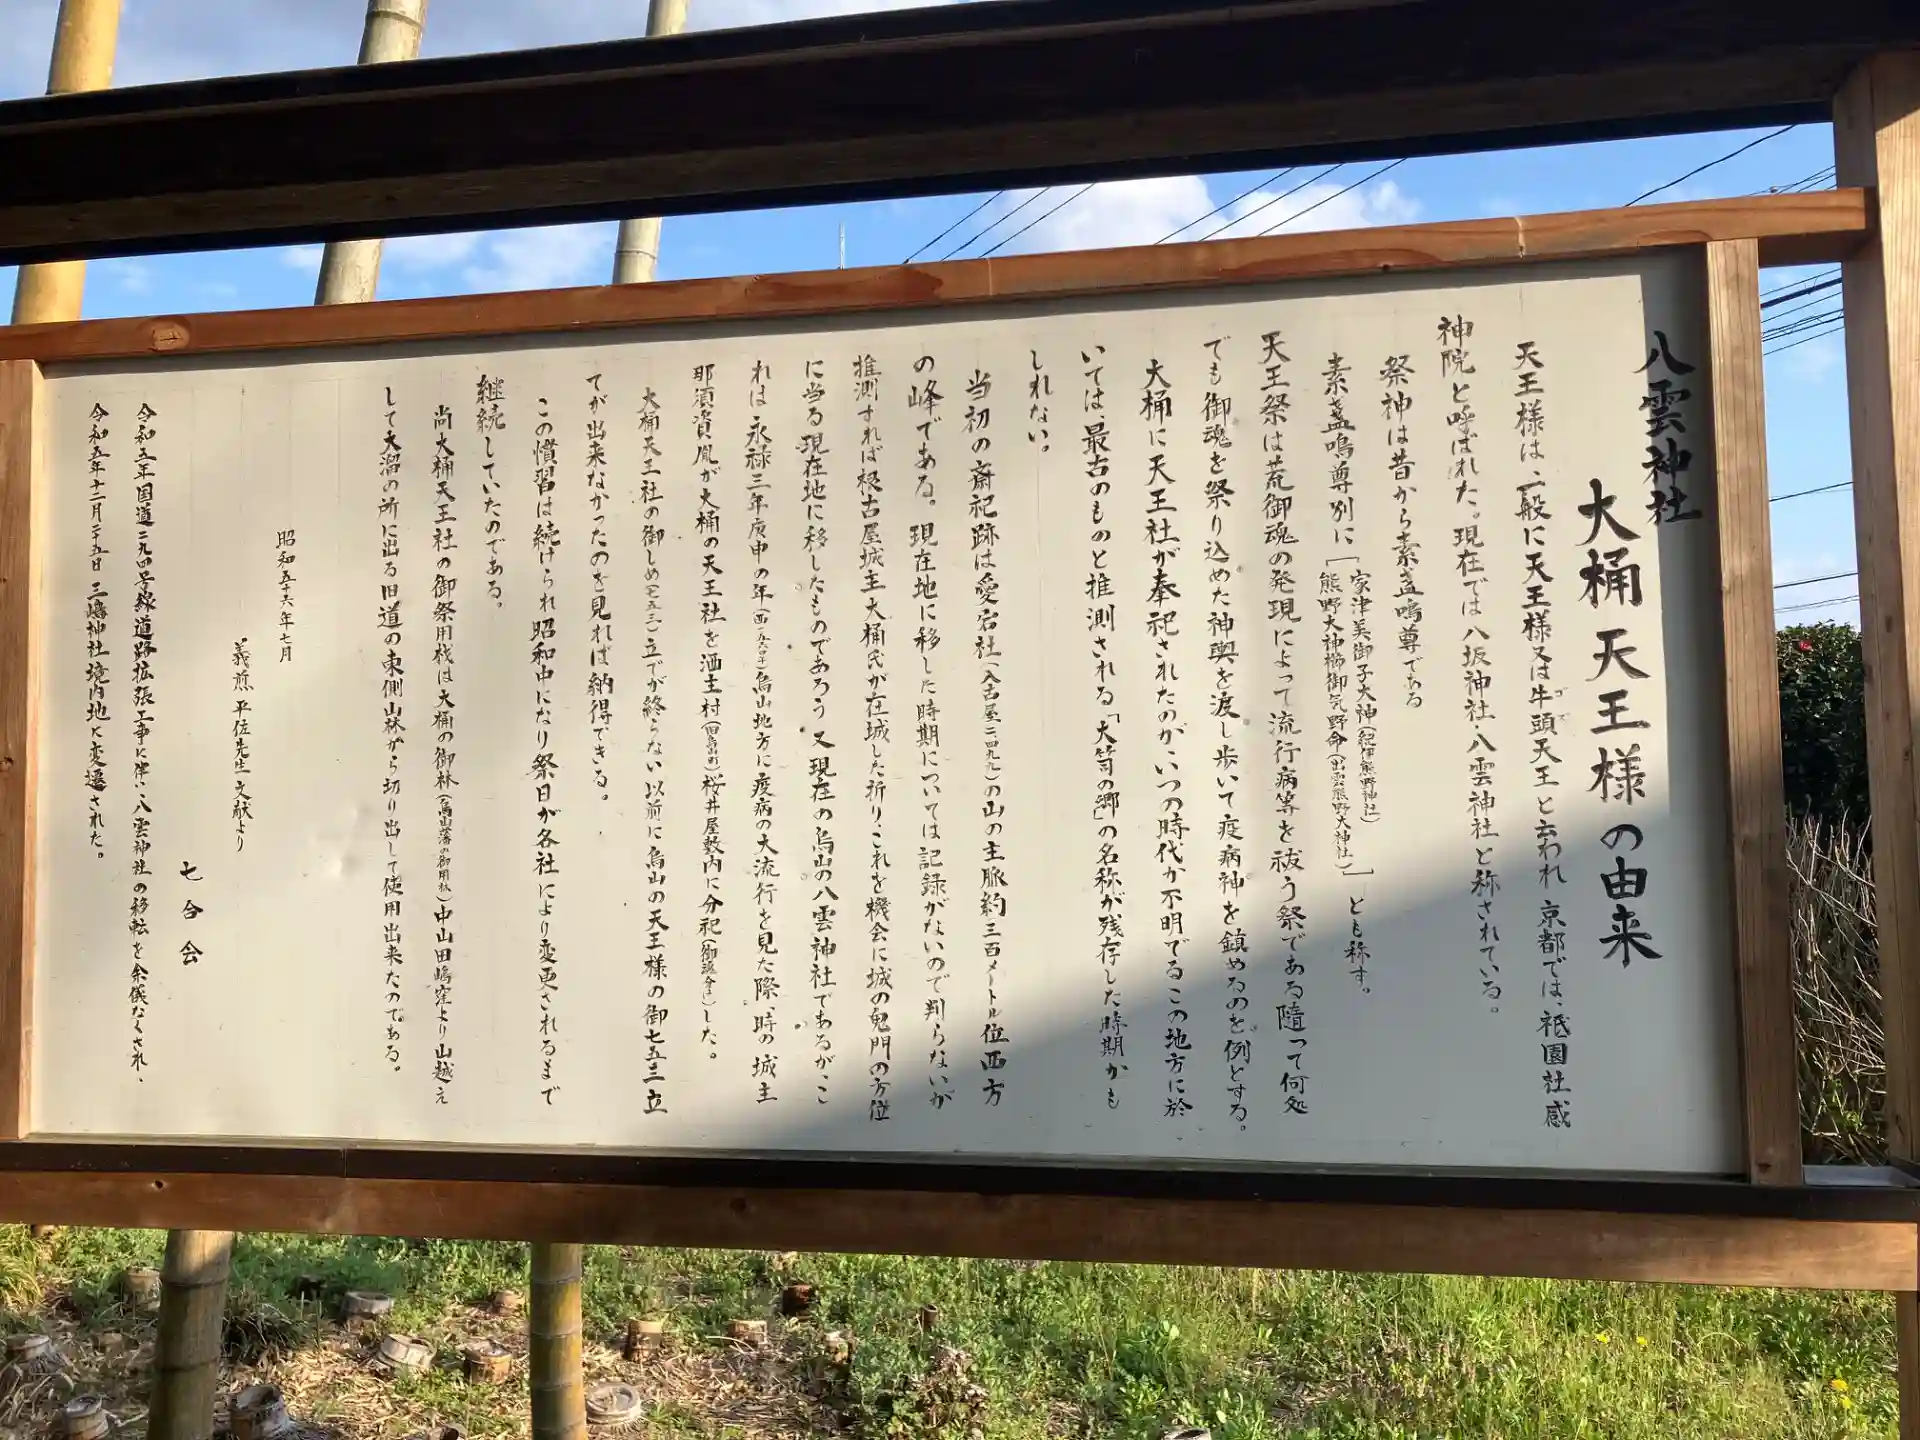 八雲神社
大桶天王様の由来
天王様は、一般に天王様又は牛頭天王と云われ京都では、祗園社感
神院と呼ばれた。現在では八坂神社・八雲神社と称されている。
祭神は昔から素盞嗚尊である
素盞嗚尊別に「家津美御子大神(紀伊熊野神社)
熊野大神櫛御気野命(出雲熊野大神社)」とも称す。
天王祭は荒御魂の発現によって流行病等を祓う祭である隨って何処
でも御魂を祭り込めた神輿を渡し歩いて疫病神を鎮めるのを例とする。
大桶に天王社が奉祀されたのがいつの時代か不明でるこの地方に於
いては、最古のものと推測される「大笥の郷」の名称が残存した時期かも
しれない。
当初の斎祀跡は愛宕社(入古屋二、四九九)の山の主脈約三百メートル位西方
の峰である。現在地に移した時期については記録がないので判らないが
推測すれば根古屋城主大桶氏が在城した折り、これを機会に城の鬼門の方位
に当る現在地に移したものであろう又現在の烏山の八雲神社であるが、こ
れは永禄三年庚申の年(西一五六〇年)烏山地方に疫病の大流行を見た際、時の城主
那須資胤が大桶の天王社を酒主村(旧烏山町)桜井屋敷内に分祀した。
大桶天王社の御しめ(七五三)立てが終らない以前に烏山の天王様の御七五三立
てが出来なかったのを見れば納得できる。
この慣習は続けられ昭和中になり祭日が各社により変更されるまで
継続していたのである。
尚大桶天王社の御祭用桟は大桶の御林(烏山藩の御用林)中山田嶋窪より山越え
して大溜の所に出る旧道の東側山林から切り出して使用出来たのである。
昭和五十六年七月
義煎平佐先生文献より
七合会
令和五年国道二九四号線道路拡張工事に伴い八雲神社の移転を余儀なくされ、
令和五年十二月二十五日三嶋神社境内地に変遷された。